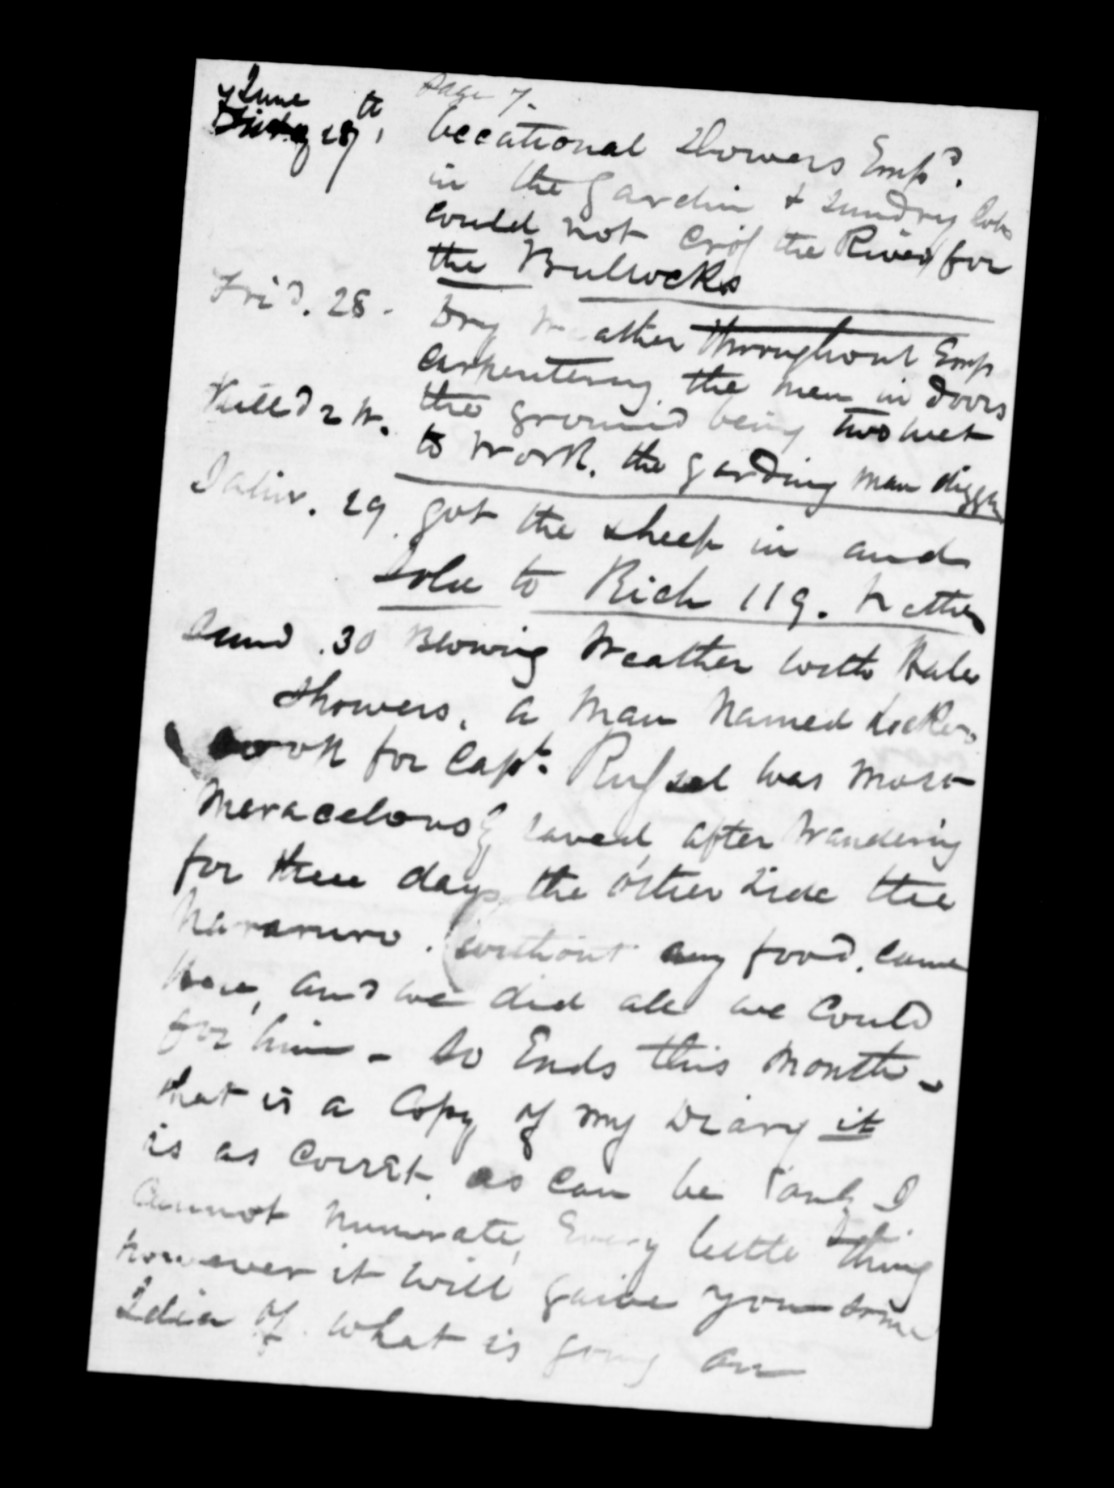 Page 7.
June
27th, Occational Showers Emp^d.
in the gardin & sundry Jobs
could not Cross the River for
the Bullocks
Frid. 28. Dry Weather throughout Emp
carpentering the men in doors
Kill'd 2 W. the ground being two wet
to Work. the garding man digging
Satur. 29 got the sheep in and
Sold to Rich 119. Wethers
Sund. 30 Blowing Weather with Hale
Showers. a Man Named
Cook for Capt. Russel was most
Meracelously saved, after Wandering
for three days the other Side the
without any food, came
here, and we did all we Could
for him - So Ends this Month -
that is a Copy of my Diary it
is as Corret. as can be and I
Cannot Numrate, Every little thing
however it will gaive you some
Idia of what is going on